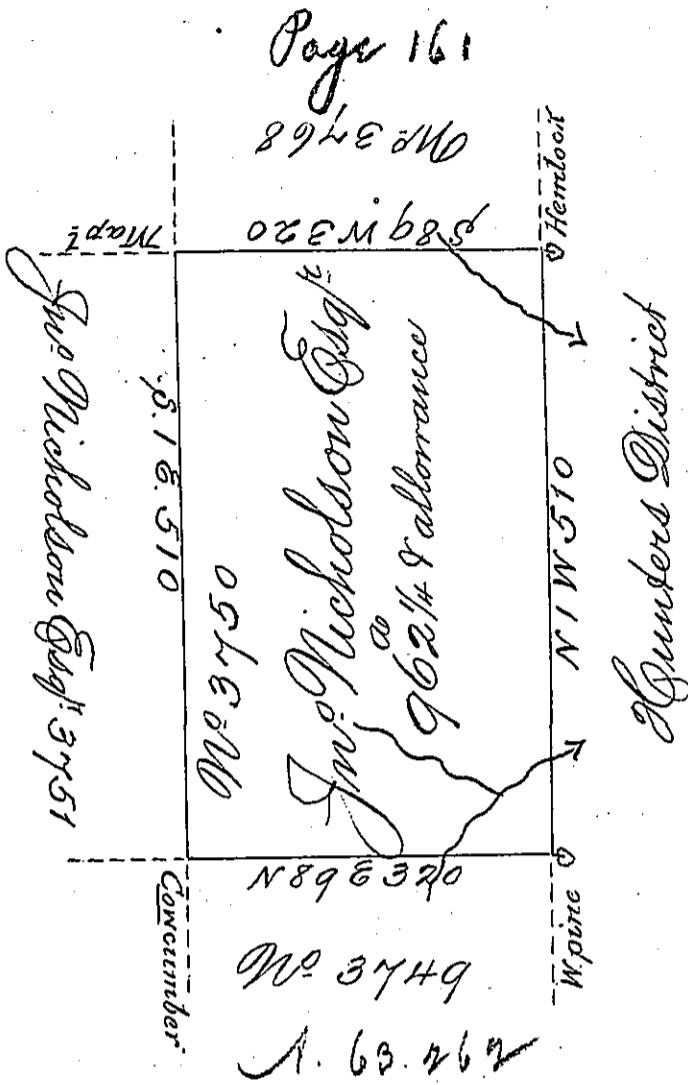 Page 161
No 3768
Mapl
S 89 W 320
Hemlock
Jno Nicholson Esqr 3751
S. 1 E. 510
No 3750
Jno Nicholson Esqr
962 1/4 a & allowrance
N 1 W 510
Hunters District
Cowcumber
N 89 E 320
W. pine
No 3749